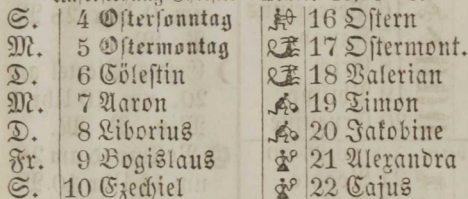 S. 4 Ostersonntag 16 Ostern
M. 5 Ostermontag 17 Ostermont.
D. 6 Cölestin 18 Valerian
M. 7 Aaron 19 Timon
D. 8 Liborius 20 Jakobine
Fr. 9 Bogislaus 21 Alexandra
S. 10 Ezechiel 22 Cajus